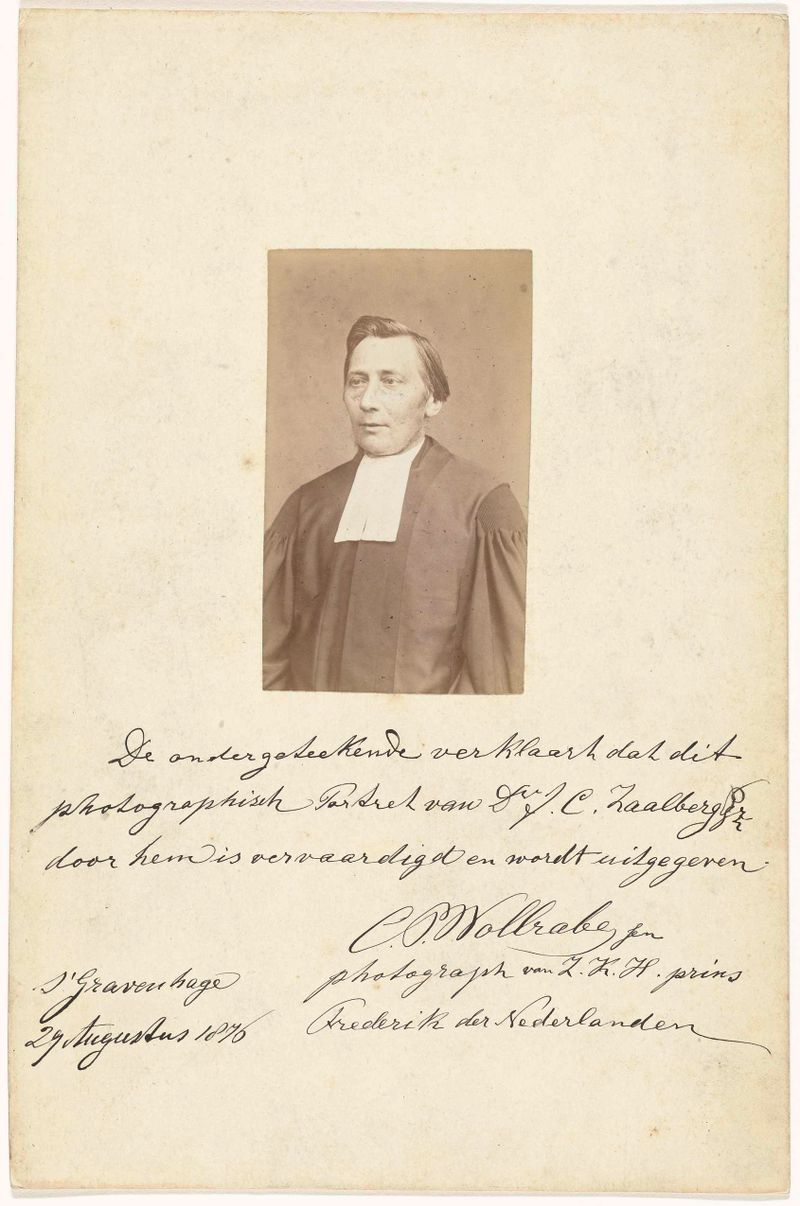 De ondergeteekende verklaart dat dit
photographisch Portret van Dr. J. C. Zaalberg Pz
door hem is vervaardigd en wordt uitgegeven.
C. P. Wollrabe sen
photograph van Z. K. H. prins
Frederik der Nederlanden
s'Gravenhage
29 Augustus 1876